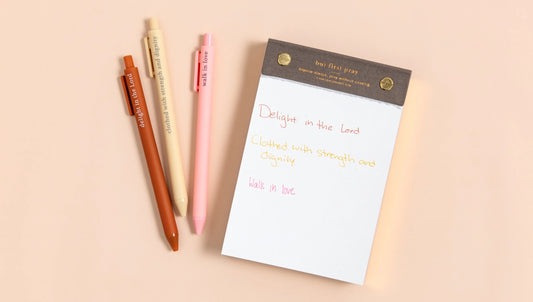 delight in the Lord
clothed with strength and dignity
walk in love
but first pray
Delight in the Lord
Clothed with strength and
dignity
Walk in love